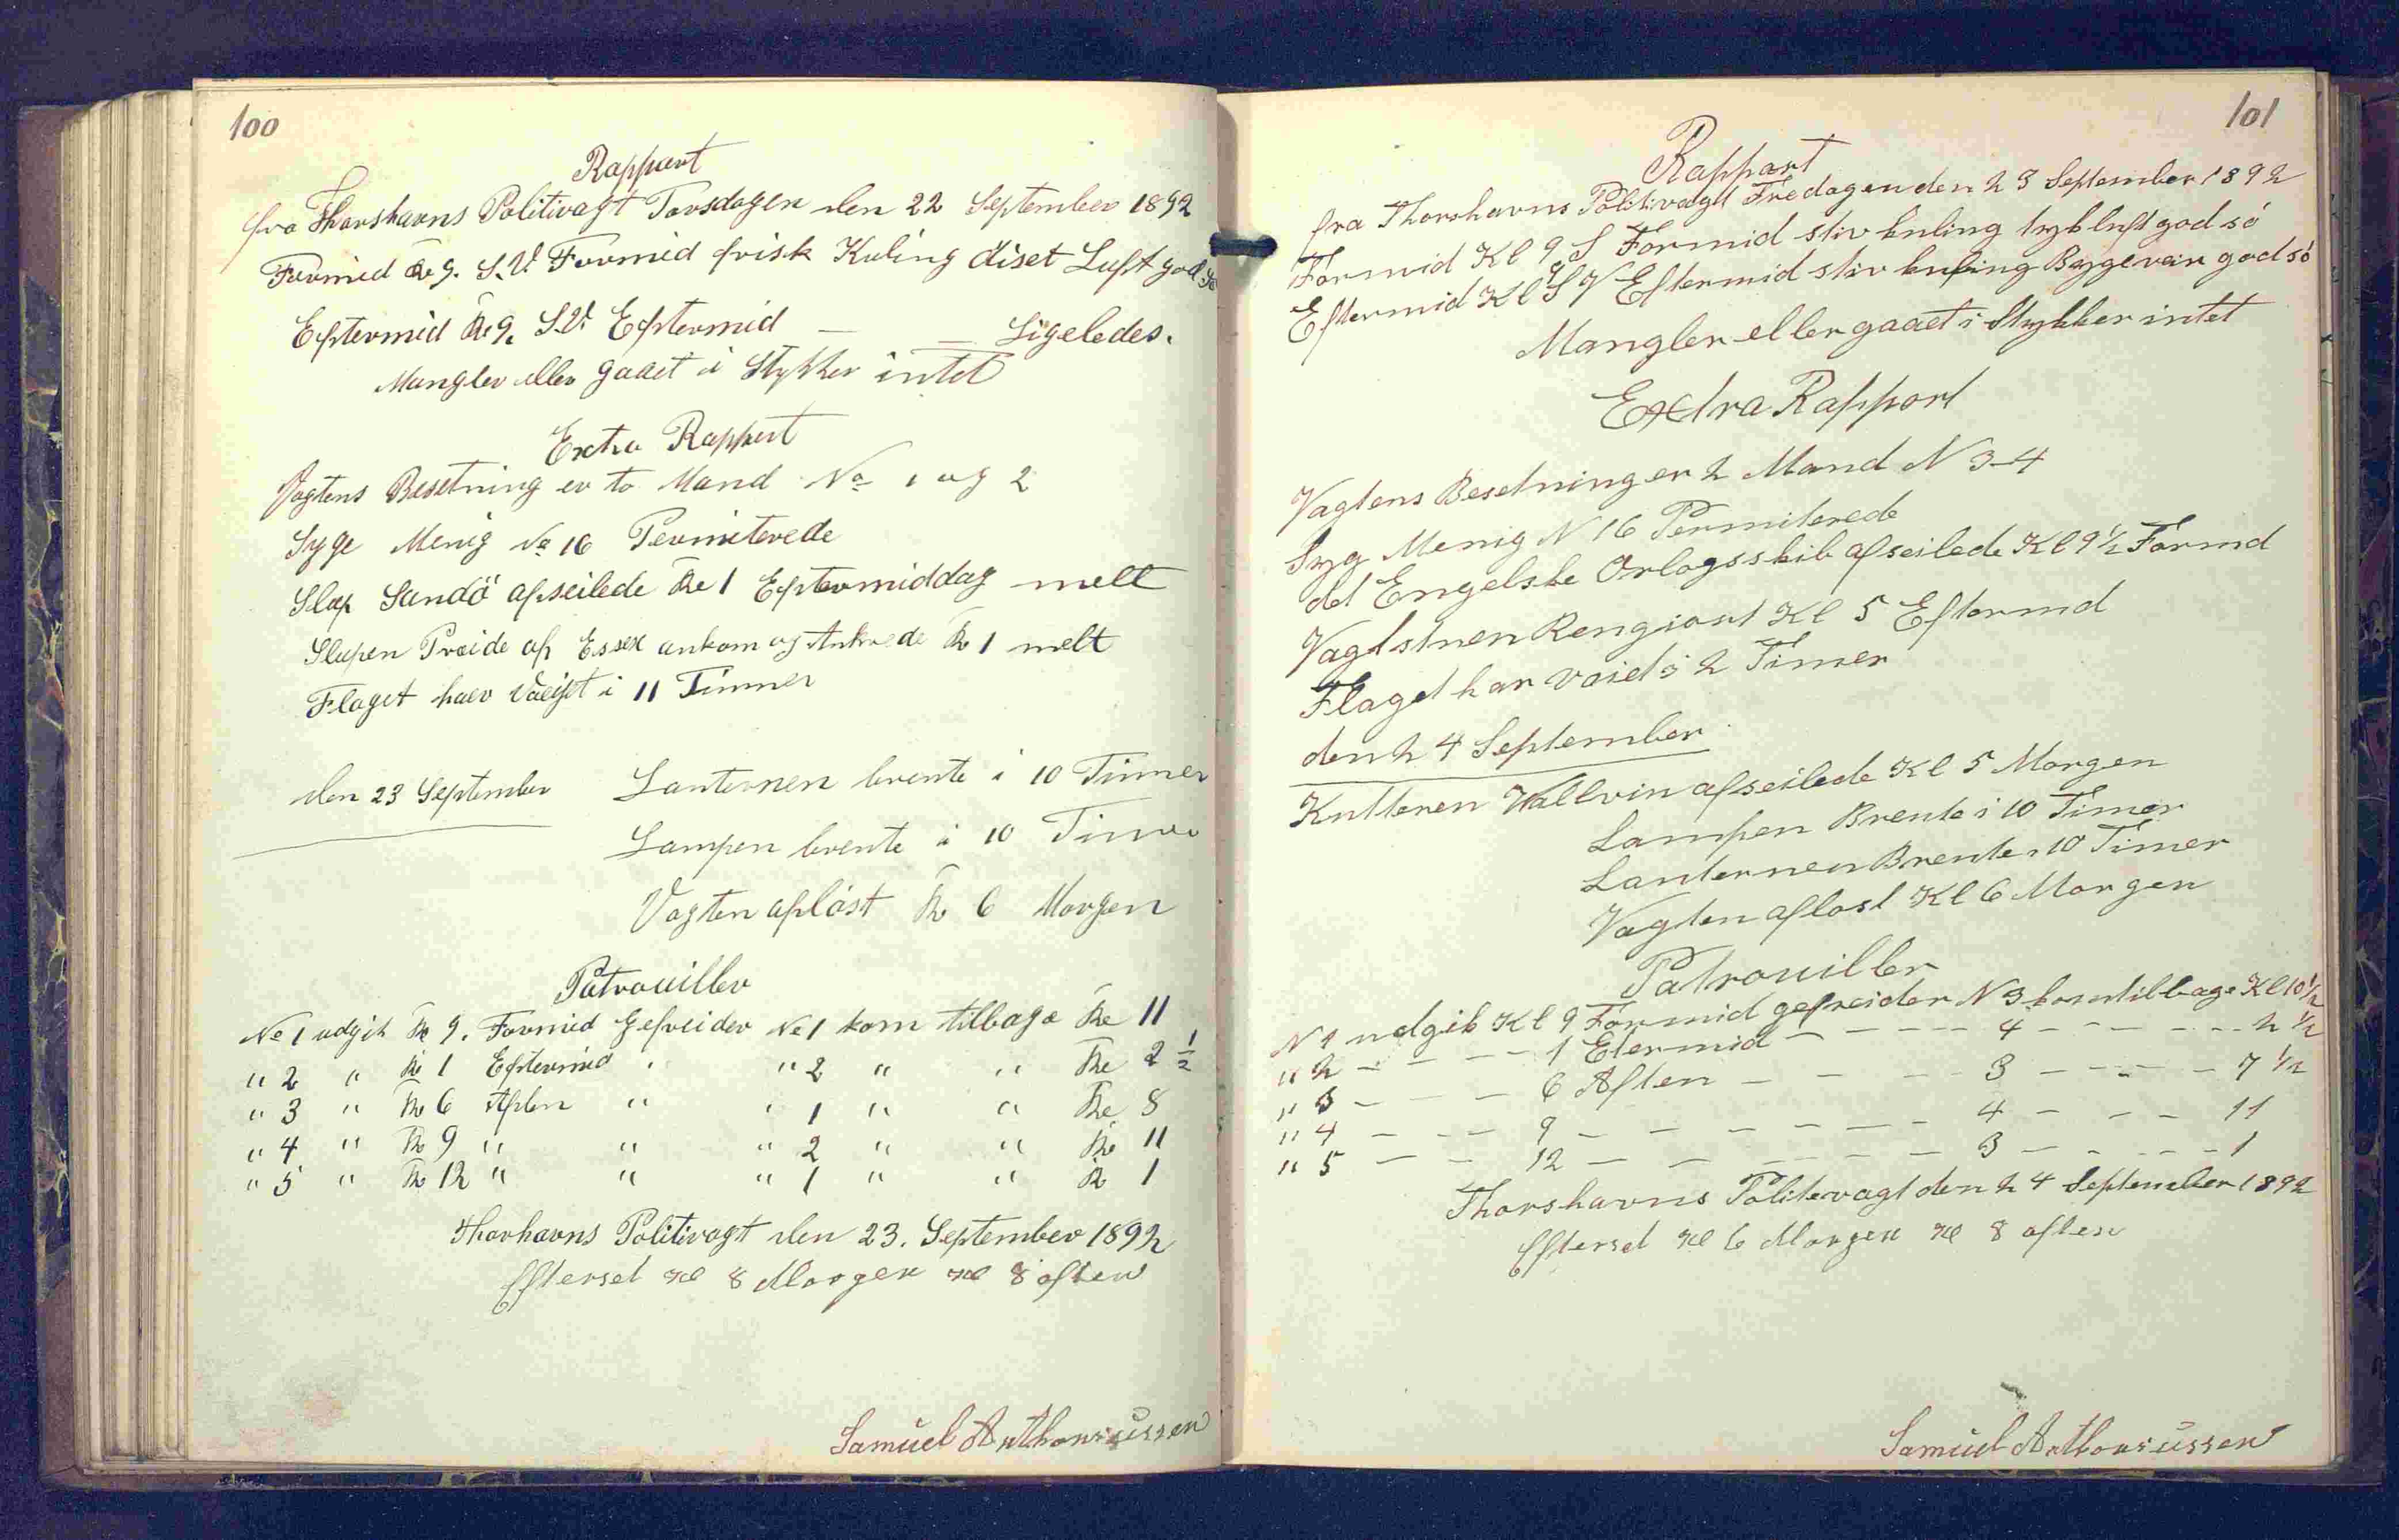 100
Rapport
fra Thorshavns Politivagt Torsdagen den 22 September 1892
Formid Kl 9. S.V. Formid frisk Kuling diset Luft god Sö
Eftermid Kl 9. S.V. Eftermid — — Ligeledes.
Mangler eller gaaet i Stykker intet
Exctra Rapport
Vagtens Besetning er to Mand No 1 og 2
Syge Menig No 16 Permiterede
Slup Sandö afseilede Kl 1 Eftermiddag melt
Slupen Preide af Essex ankom og Ankrede Kl 1 melt
Flaget haver i 11 Timmer
den 23 September Lanternen brente i 10 Timmer
Lampen brente i 10 Timer
Vagten aflöst Kl 6 Morgen
Patrouiller
No 1 udgik Kl 9. Formid Gefreider No 1 kom tilbage Kl 11
" 2 " Kl 1 Eftermid " " 2 " " Kl 2 1/2
" 3 " Kl 6 Aften " " 1 " " Kl 8
" 4 " Kl 9 " " " 2 " " Kl 11
" 5 " Kl 12 " " " 1 " " Kl 1
Thorhavns Politivagt den 23. September 1892
Efterset Kl 8 Morgen Kl 8 aften
Samuel Anthoniussen
101
Rapport
fra Thorshavns Politivagt Fredagen den 23 September 1892
Formid Kl 9 S Formid stiv kuling tyk luft god sö
Eftermid Kl 9 S V Eftermid stiv kuling Bygevair god sö
Mangler eller gaaet i Stykker intet
Extra Rapport
Vagtens Besetning er 2 Mand N 3-4
Syg Menig N 16 Permiterede
det Engelske Orlogsskib afseilede Kl 9 1/2 Formd
Vagtstuen Rengiort Kl 5 Eftermd
Flaget har vaid i 2 Timer
den 24 September
Kutteren Vallvin afseilede Kl 5 Morgen
Lampen Brente i 10 Timer
Lanternen Brente i 10 Timer
Vagten aflost Kl 6 Morgen
Patrouiller
N 1 udgik Kl 9 Formid gefreider N 3 kom tilbage Kl 10 1/2
" 2 — — — — 1 Etermid — — — — 4 — — — — 2 1/2
" 3 — — — — 6 Aften — — — — 3 — — — — 7 1/2
" 4 — — — 9 — — — — — — — 4 — — — 11
" 5 — — — 12 — — — — — — — 3 — — — — 1
Thorshavns Politevagt den 24 September 1892
Efterset Kl 6 Morgen Kl 8 aften
Samuel Anthoniussen